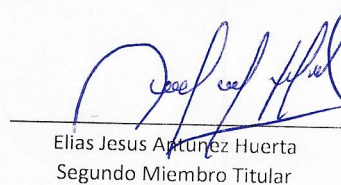 Elias Jesus Antunez Huerta
Segundo Miembro Titular